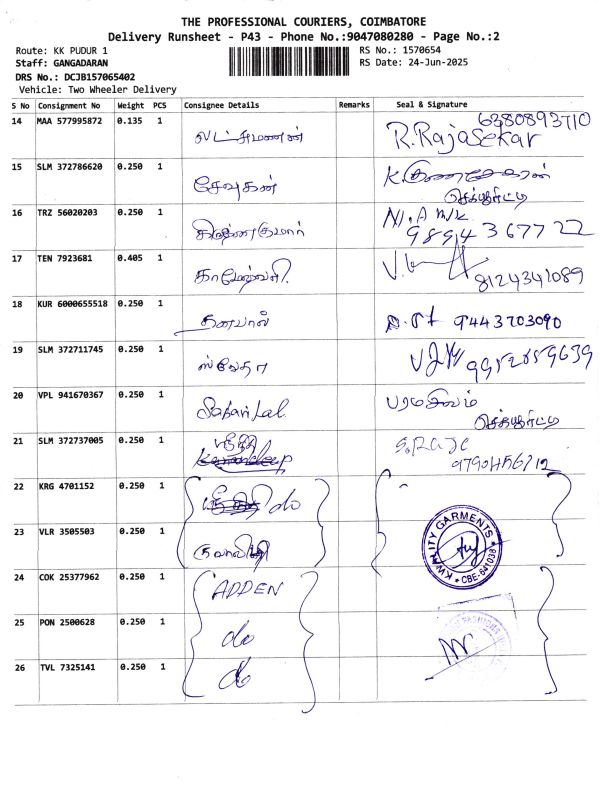 THE PROFESSIONAL COURIERS, COIMBATORE
Delivery Runsheet - P43 - Phone No.:9047080280 - Page No.:2
Route: KK PUDUR 1
RS No.: 1570654
Staff: GANGADARAN
RS Date: 24-Jun-2025
DRS No.: DCJB157065402
Vehicle: Two Wheeler Delivery
S No Consignment No Weight PCS Consignee Details Remarks Seal & Signature
14 MAA 577995872 0.135 1 லட்சுமணன் R.Rajasekar 6380893710
15 SLM 372786620 0.250 1 சேவுகன் K. குணசேகரன்
செக்யூரிட்டி
16 TRZ 56020203 0.250 1 கிருஷ்ணகுமார்
9894367722
17 TEN 7923681 0.405 1 8124341089
18 KUR 6000655518 0.250 1 தனபால் 9443703090
19 SLM 372711745 0.250 1 ஸ்வேதா
20 VPL 941670367 0.250 1 Sabarilal பரமசிவம்
செக்யூரிட்டி
21 SLM 372737005 0.250 1 S.RAJE
22 KRG 4701152 0.250 1 do
23 VLR 3505503 0.250 1 KWALITY GARMENTS
* CBE-641038 *
24 COK 25377962 0.250 1 ADDEN
25 PON 2500628 0.250 1 do
26 TVL 7325141 0.250 1 do